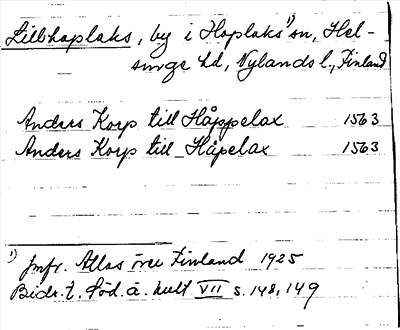 Lillhoplaks, by i Hoplaks¹⁾ sn, Hel-
singe hd, Nylands l., Finland
Anders Korp till Håppelax 1563
Anders Korp till Håpelax 1563
¹⁾ Jmfr. Atlas över Finland 1925
Bidr. t. Söd. ä. kult VII s. 148, 149